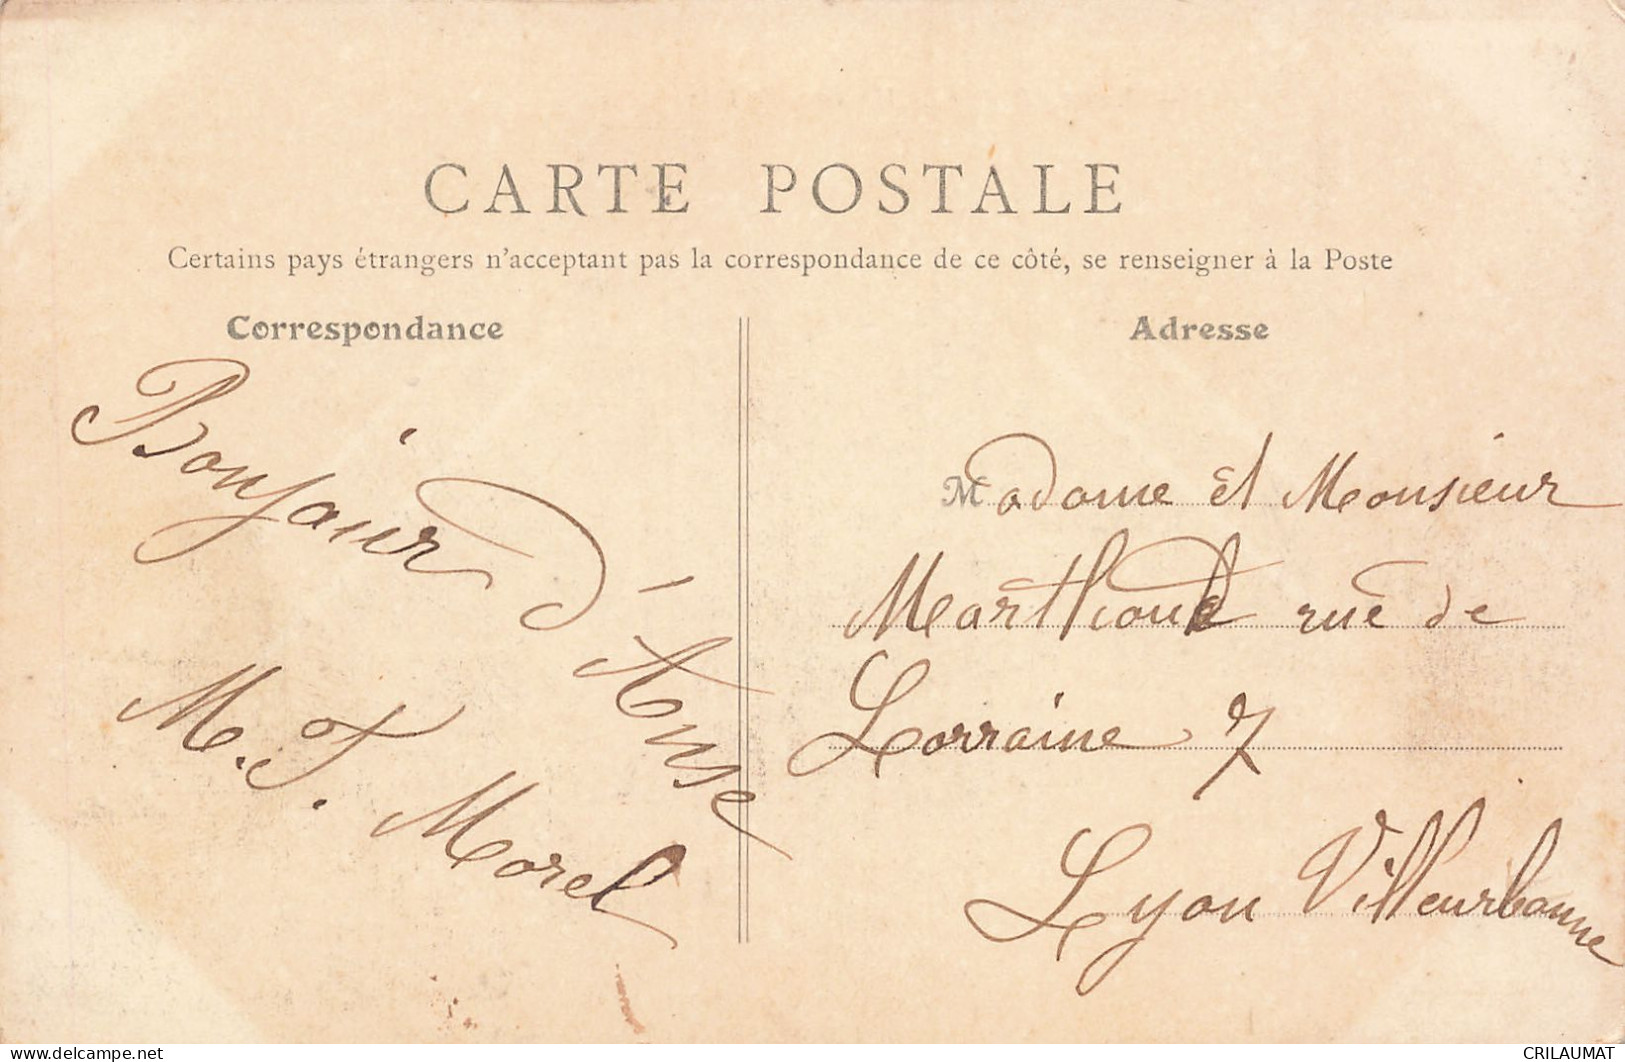 CARTE POSTALE
Certains pays étrangers n'acceptant pas la correspondance de ce côté, se renseigner à la Poste
Correspondance
Bonjour d'Anse
M. F. Morel
Adresse
Madame et Monsieur
rue de
Lorraine 7
Lyon Villeurbanne
delcampe.net
CRILAUMAT